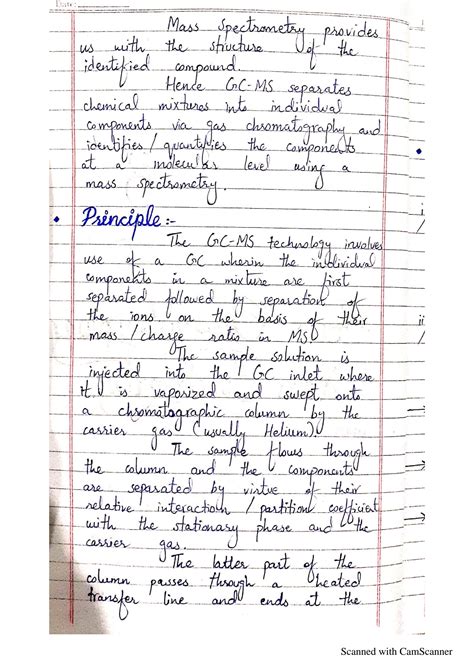 Date:
Mass Spectrometry provides
us with the structure of the
identified compound.
Hence GC-MS separates
chemical mixtures into individual
components via gas chromatography and
identifies / quantifies the components
at a molecular level using a
mass spectrometry.
• Principle :-
The GC-MS technology involves
use of a GC wherein the individual
components in a mixture are first
separated followed by separation of
the ions on the basis of their
mass / charge ratio in MS.
The sample solution is
injected into the GC inlet where
it is vaporized and swept onto
a chromatographic column by the
carrier gas (usually Helium).
The sample flows through
the column and the components
are separated by virtue of their
relative interaction / partition coefficient
with the stationary phase and the
carrier gas.
The latter part of the
column passes through a heated
transfer line and ends at the
i
ii
Scanned with CamScanner